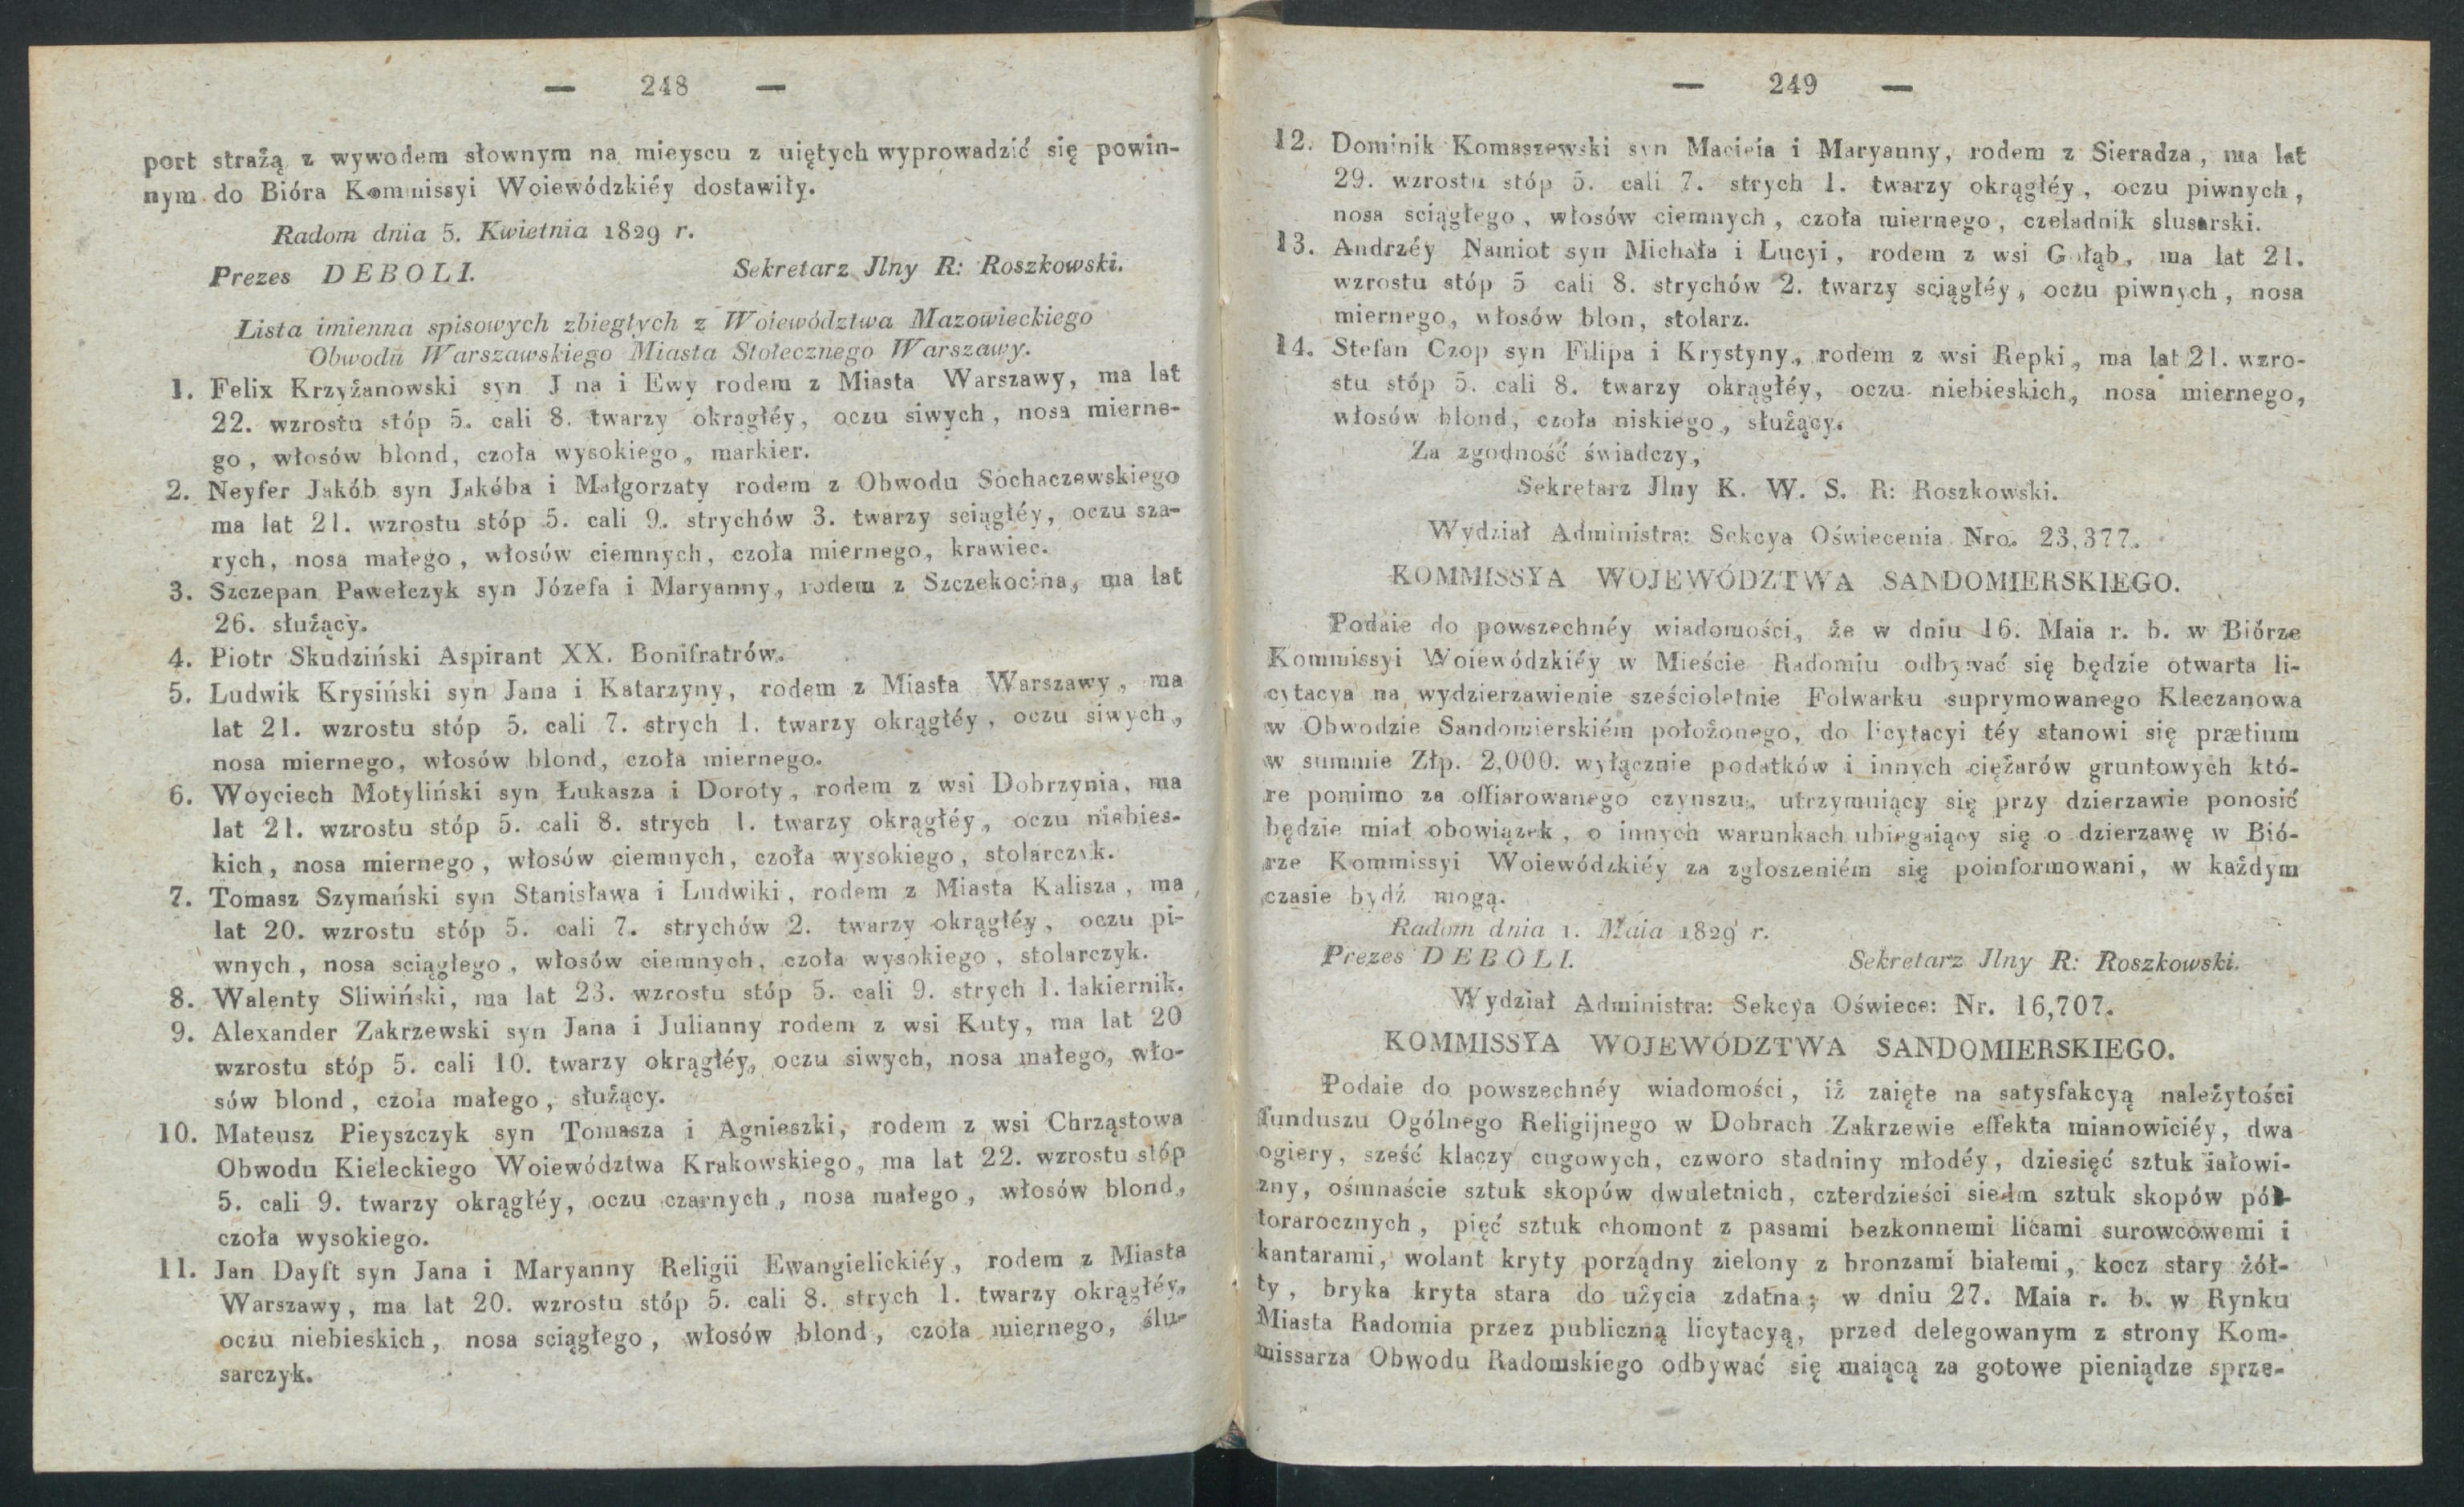 — 248 —
port strażą z wywodem słownym na mieyscu z uiętych wyprowadzić się powin-
nym do Bióra Kommissyi Woiewódzkiéy dostawiły.
Radom dnia 5. Kwietnia 1829 r.
Prezes DEBOLI. Sekretarz Jlny R: Roszkowski.
Lista imienna spisowych zbiegłych z Woiewództwa Mazowieckiego
Obwodu Warszawskiego Miasta Stołecznego Warszawy.
1. Felix Krzyżanowski syn J na i Ewy rodem z Miasta Warszawy, ma lat
22. wzrostu stóp 5. cali 8. twarzy okrągłéy, oczu siwych, nosa mierne-
go, włosów blond, czoła wysokiego, markier.
2. Neyfer Jakób syn Jakóba i Małgorzaty rodem z Obwodu Sochaczewskiego
ma lat 21. wzrostu stóp 5. cali 9. strychów 3. twarzy sciągłéy, oczu sza-
rych, nosa małego, włosów ciemnych, czoła miernego, krawiec.
3. Szczepan Pawełczyk syn Józefa i Maryanny, rodem z Szczekocina, ma lat
26. służący.
4. Piotr Skudziński Aspirant XX. Bonifratrów.
5. Ludwik Krysiński syn Jana i Katarzyny, rodem z Miasta Warszawy, ma
lat 21. wzrostu stóp 5. cali 7. strych 1. twarzy okrągłéy, oczu siwych,
nosa miernego, włosów blond, czoła miernego.
6. Woyciech Motyliński syn Łukasza i Doroty, rodem z wsi Dobrzynia, ma
lat 21. wzrostu stóp 5. cali 8. strych 1. twarzy okrągłéy, oczu niebies-
kich, nosa miernego, włosów ciemnych, czoła wysokiego, stolarczyk.
7. Tomasz Szymański syn Stanisława i Ludwiki, rodem z Miasta Kalisza, ma
lat 20. wzrostu stóp 5. cali 7. strychów 2. twarzy okrągłéy, oczu pi-
wnych, nosa sciągłego, włosów ciemnych, czoła wysokiego, stolarczyk.
8. Walenty Sliwiński, ma lat 23. wzrostu stóp 5. cali 9. strych 1. lakiernik.
9. Alexander Zakrzewski syn Jana i Julianny rodem z wsi Kuty, ma lat 20
wzrostu stóp 5. cali 10. twarzy okrągłéy, oczu siwych, nosa małego, wło-
sów blond, czoła małego, służący.
10. Mateusz Pieyszczyk syn Tomasza i Agnieszki, rodem z wsi Chrząstowa
Obwodu Kieleckiego Woiewództwa Krakowskiego, ma lat 22. wzrostu stóp
5. cali 9. twarzy okrągłéy, oczu czarnych, nosa małego, włosów blond,
czoła wysokiego.
11. Jan Dayft syn Jana i Maryanny Religii Ewangielickiéy, rodem z Miasta
Warszawy, ma lat 20. wzrostu stóp 5. cali 8. strych 1. twarzy okrągłéy,
oczu niebieskich, nosa sciągłego, włosów blond, czoła miernego, ślu-
sarczyk.
— 249 —
12. Dominik Komaszewski syn Macieia i Maryanny, rodem z Sieradza, ma lat
29. wzrostu stóp 5. cali 7. strych 1. twarzy okrągłéy, oczu piwnych,
nosa sciągłego, włosów ciemnych, czoła miernego, czeladnik slusarski.
13. Andrzéy Namiot syn Michała i Łucyi, rodem z wsi Gołąb, ma lat 21.
wzrostu stóp 5 cali 8. strychów 2. twarzy sciągłéy, oczu piwnych, nosa
miernego, włosów blon, stolarz.
14. Stefan Czop syn Filipa i Krystyny, rodem z wsi Repki, ma lat 21. wzro-
stu stóp 5. cali 8. twarzy okrągłéy, oczu niebieskich, nosa miernego,
włosów blond, czoła niskiego, służący.
Za zgodność świadczy,
Sekretarz Jlny K. W. S. R: Roszkowski.
Wydział Administra: Sekcya Oświecenia Nro. 23,377.
KOMMISSYA WOJEWÓDZTWA SANDOMIERSKIEGO.
Podaie do powszechnéy wiadomości, że w dniu 16. Maia r. b. w Biórze
Kommissyi Woiewódzkiéy w Mieście Radomiu odbywać się będzie otwarta li-
cytacya na wydzierzawienie sześcioletnie Folwarku suprymowanego Kleczanowa
w Obwodzie Sandomierskiém położonego, do licytacyi téy stanowi się prætium
w summie Złp. 2,000. wyłącznie podatków i innych ciężarów gruntowych któ-
re pomimo za offiarowanego czynszu, utrzymuiący się przy dzierzawie ponosić
będzie miał obowiązek, o innych warunkach ubiegaiący się o dzierzawę w Bió-
rze Kommissyi Woiewódzkiéy za zgłoszeniém się poinformowani, w każdym
czasie bydź mogą.
Radom dnia 1. Maia 1829 r.
Prezes DEBOLI. Sekretarz Jlny R: Roszkowski.
Wydział Administra: Sekcya Oświece: Nr. 16,707.
KOMMISSYA WOJEWÓDZTWA SANDOMIERSKIEGO.
Podaie do powszechnéy wiadomości, iż zaięte na satysfakcyą należytości
funduszu Ogólnego Religijnego w Dobrach Zakrzewie effekta mianowiciéy, dwa
ogiery, sześć klaczy cugowych, czworo stadniny młodéy, dziesięć sztuk iałowi-
zny, ośmnaście sztuk skopów dwuletnich, czterdzieści siedm sztuk skopów pół-
torarocznych, pięć sztuk chomont z pasami bezkonnemi licami surowcowemi i
kantarami, wolant kryty porządny zielony z bronzami białemi, kocz stary żół-
ty, bryka kryta stara do użycia zdatna; w dniu 27. Maia r. b. w Rynku
Miasta Radomia przez publiczną licytacyą, przed delegowanym z strony Kom-
missarza Obwodu Radomskiego odbywać się maiącą za gotowe pieniądze sprze-